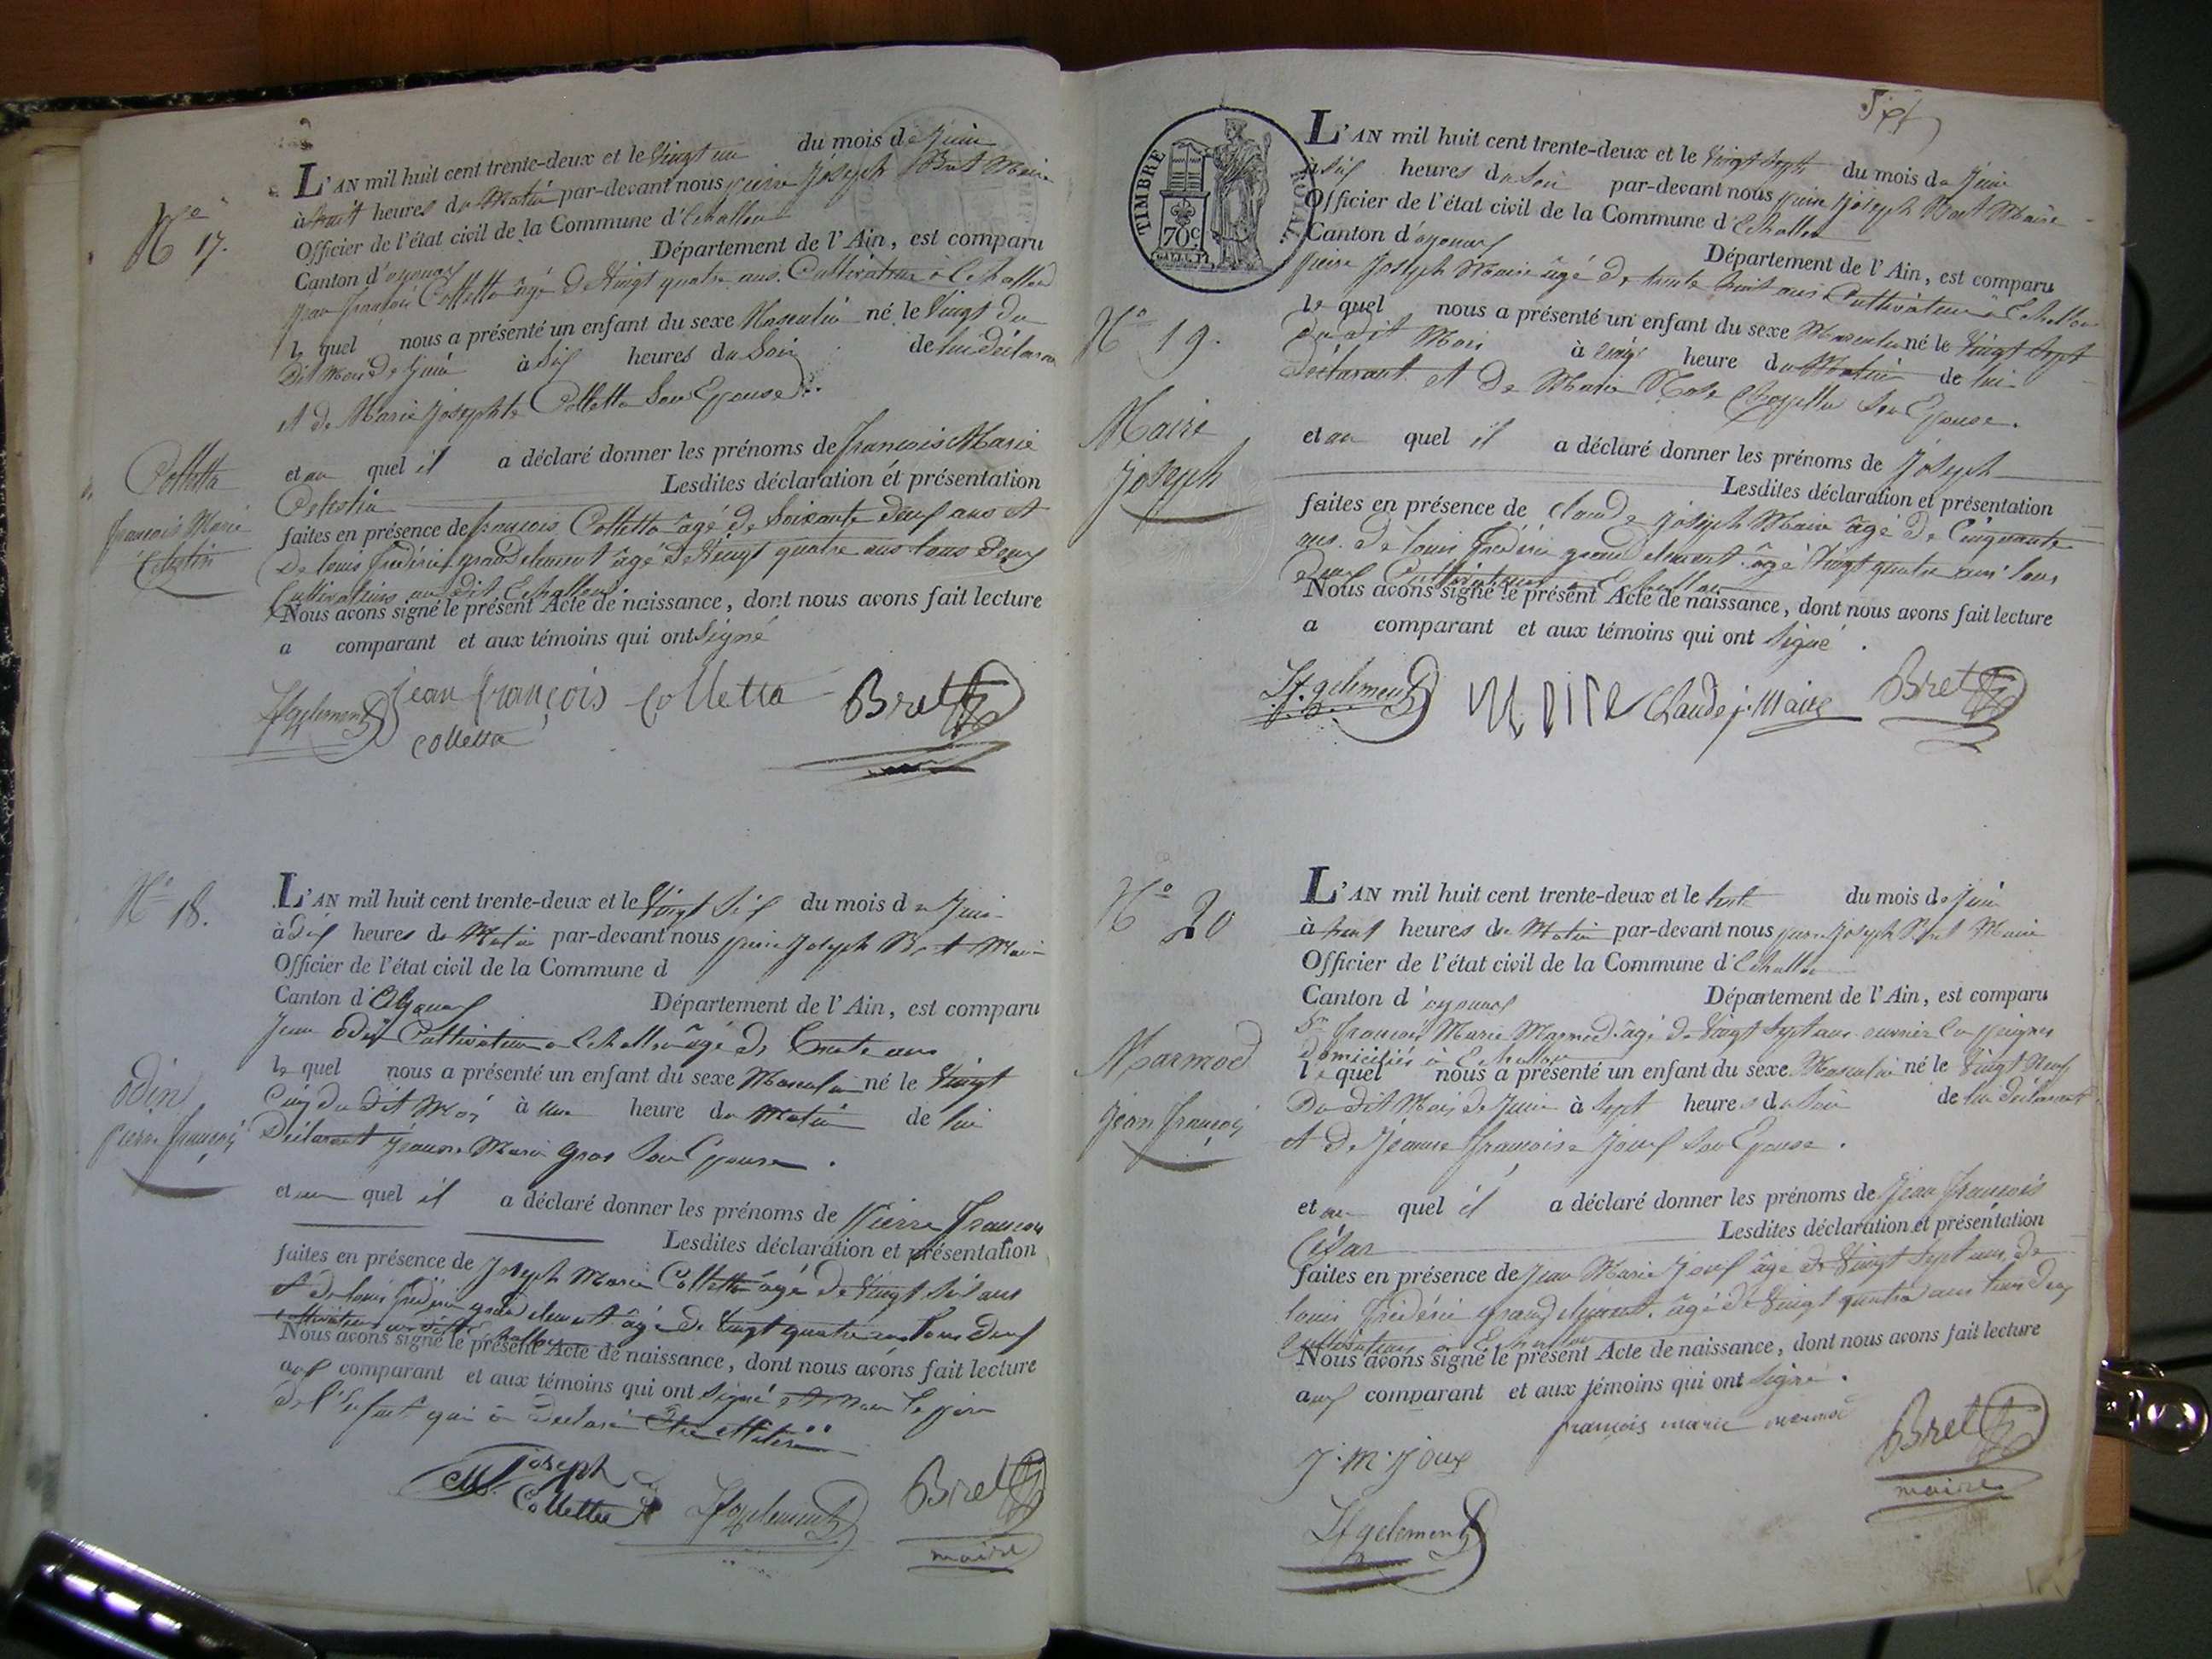 N° 17.
L'AN mil huit cent trente-deux et le Vingt un du mois de Juin
à huit heures du Matin par-devant nous pierre Joseph Bret Maire
Officier de l'état civil de la Commune d'Echallon
Canton d'oyonax Département de l'Ain, est comparu
Jean françois Colletta âgé de Vingt quatre ans. Cultivateur à Echallon
le quel nous a présenté un enfant du sexe Masculin né le Vingt du
dit Mois de Juin à Six heures du Soir de lui déclarant
et de Marie Josephte Colletta Son Epouse.
Colletta
françois Marie
Celestin
et au quel il a déclaré donner les prénoms de françois Marie
Celestin Lesdites déclaration et présentation
faites en présence de françois Colletta âgé de Soixante deux ans et
De louis frédéric grandclement âgé de Vingt quatre ans tous deux
Cultivateurs au dit Echallon.
Nous avons signé le présent Acte de naissance, dont nous avons fait lecture
a comparant et aux témoins qui ont Signé
Lfgclement jean françois colletta Bret
colletta
N° 18.
L'AN mil huit cent trente-deux et le Vingt Six du mois de Juin
à dix heures du Matin par-devant nous pierre Joseph Bret Maire
Officier de l'état civil de la Commune d
Canton d'Oyonax Département de l'Ain, est comparu
Jean odin Cultivateur a Echallon âgé de Trente ans
le quel nous a présenté un enfant du sexe Masculin né le Vingt
Cinq du dit Mois à une heure du Matin de lui
Déclarant Jeanne Marie gros Son Epouse.
odin
pierre françois
et au quel il a déclaré donner les prénoms de Pierre françois
Lesdites déclaration et présentation
faites en présence de Joseph Marie Colletta âgé de Vingt Six ans
et de louis frédéric grandclement âgé de Vingt quatre ans tous deux
cultivateurs au dit Echallon
Nous avons signé le présent Acte de naissance, dont nous avons fait lecture
aux comparant et aux témoins qui ont Signé et non le père
de l'Enfant qui a Déclaré Etre illitéré
Joseph
Colletta Lfgclement Bret
maire
Sept
TIMBRE ROYAL
70c
L'AN mil huit cent trente-deux et le Vingt Sept du mois de Juin
à Six heures du Soir par-devant nous pierre Joseph Bret Maire
Officier de l'état civil de la Commune d'Echallon
Canton d'oyonax Département de l'Ain, est comparu
pierre Joseph Maire âgé de trente huit ans Cultivateur à Echallon
N° 19.
le quel nous a présenté un enfant du sexe Masculin né le Vingt Sept
du dit Mois à cinq heure du Matin de lui
Déclarant et De Marie Rose Chapella Son Epouse.
Maire
Joseph
et au quel il a déclaré donner les prénoms de Joseph
Lesdites déclaration et présentation
faites en présence de Claude Joseph Maire âgé de Cinquante
ans. De louis frédéric grandclement. âgé Vingt quatre ans tous
deux Cultivateurs a Echallon
Nous avons signé le présent Acte de naissance, dont nous avons fait lecture
a comparant et aux témoins qui ont Signé.
Lf.gclement Maire Claude j. Maire Bret
N° 20
L'AN mil huit cent trente-deux et le trente du mois de Juin
à huit heures du Matin par-devant nous pierre Joseph Bret Maire
Officier de l'état civil de la Commune d'Echallon
Canton d'oyonax Département de l'Ain, est comparu
françois Marie Marmod âgé de Vingt Sept ans ouvrier en peignes
domiciliés à Echallon
le quel nous a présenté un enfant du sexe Masculin né le Vingt Neuf
Du dit Mois de Juin à Sept heures du Soir de lui déclarant
et De Jeanne françoise Joux Son Epouse.
Marmod
jean françois
et au quel il a déclaré donner les prénoms de Jean françois
César Lesdites déclaration et présentation
faites en présence de Jean Marie Joux âgé de Vingt Sept ans, de
louis frédéric grandclément. âgé de Vingt quatre ans tous deux
Cultivateurs à Echallon
Nous avons signé le présent Acte de naissance, dont nous avons fait lecture
aux comparant et aux témoins qui ont Signé.
françois marie marmod Bret
J. M. Joux maire
Lfgclement